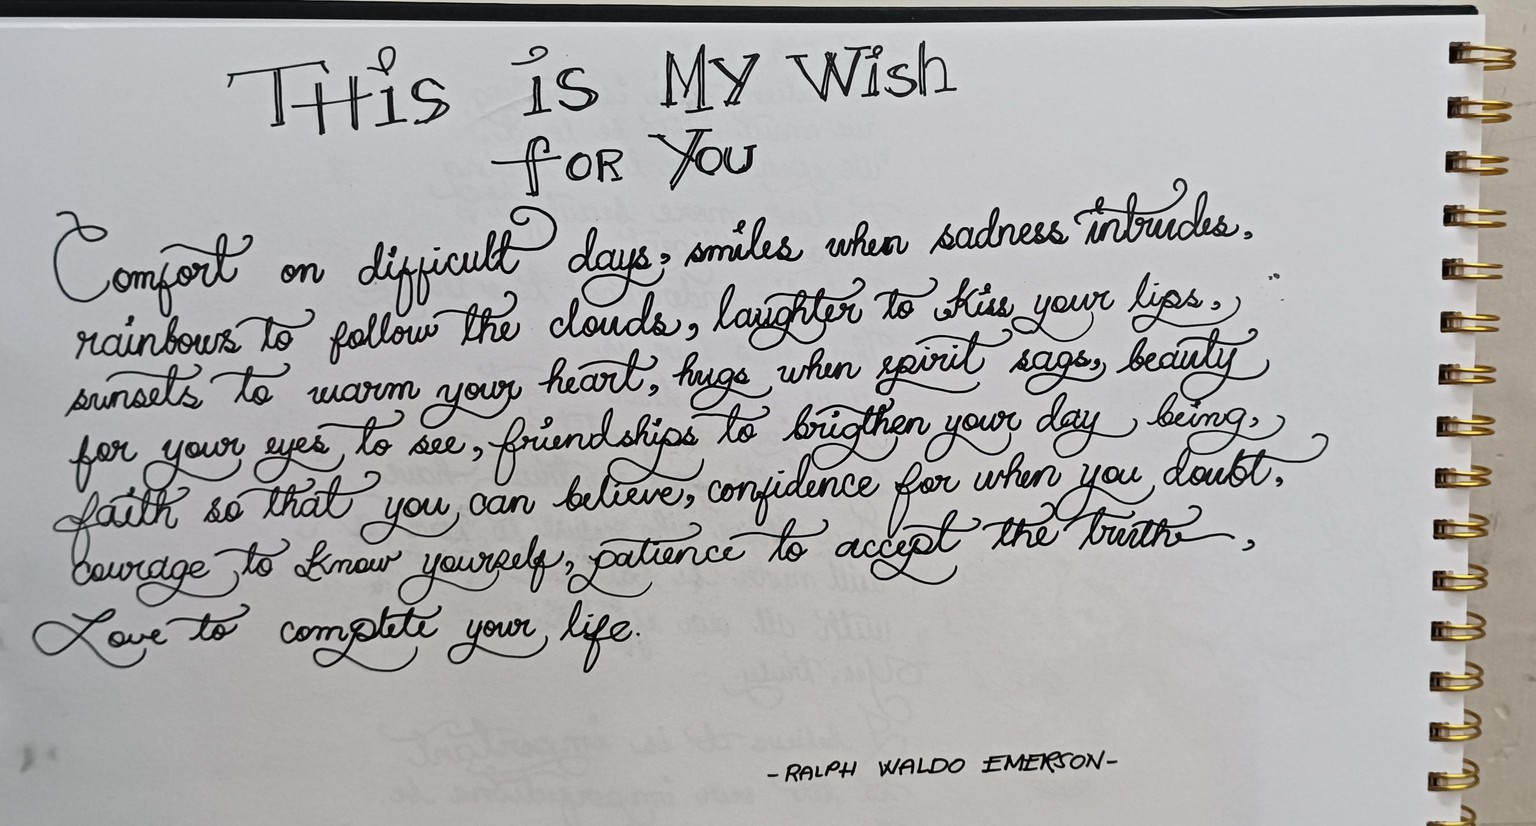 THis is MY Wish
for You
Comfort on difficult days, smiles when sadness intrudes,
rainbows to follow the clouds, laughter to kiss your lips,
sunsets to warm your heart, hugs when spirit sags, beauty
for your eyes to see, friendships to brigthen your day being,
faith so that you can believe, confidence for when you doubt,
courage to know yourself, patience to accept the truth,
Love to complete your life.
-RALPH WALDO EMERSON-